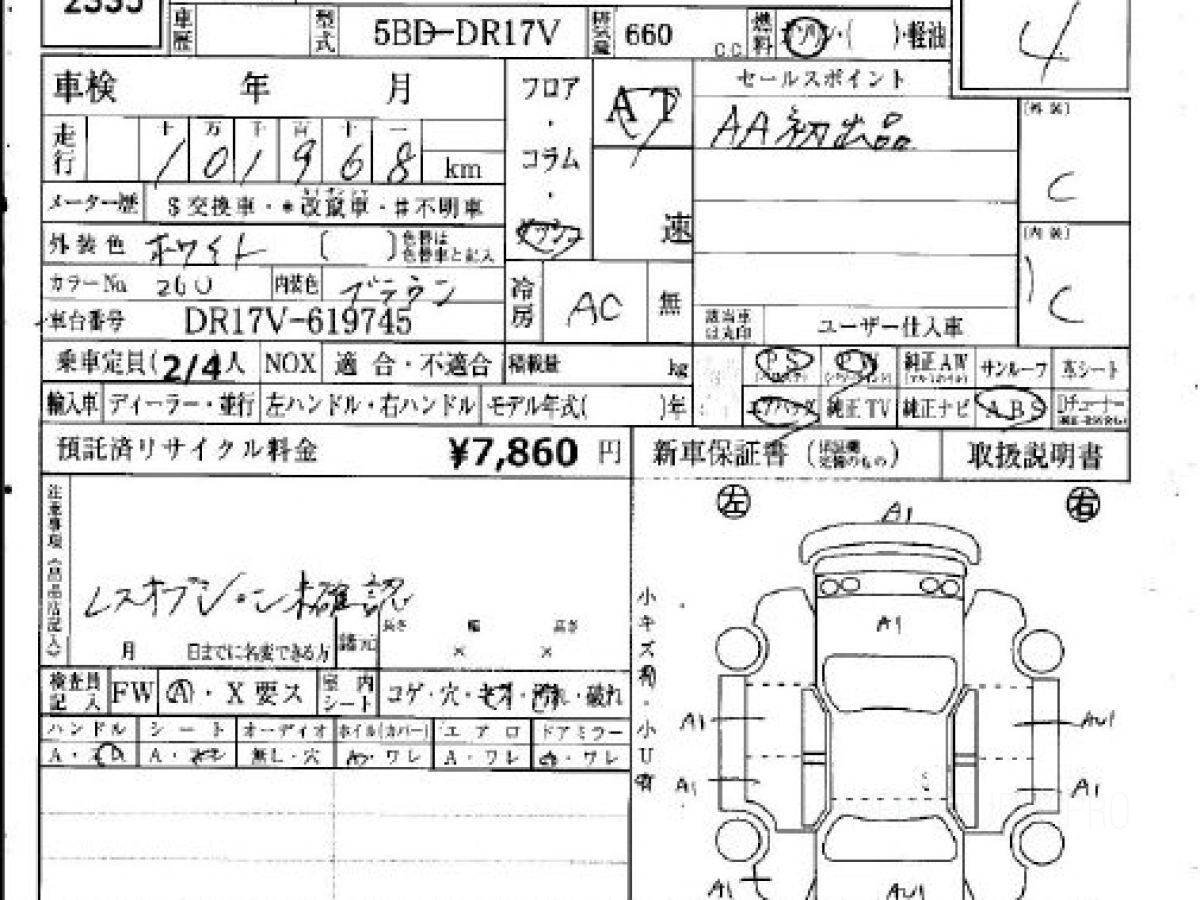 2335
車歴 型式 5BD-DR17V 排気量 660 C.C. 燃料 ガソリン・( )・軽油
4
車検 年 月
フロア・コラム・インパネ
AT
速
セールスポイント
AA初出品
[外装]
C
[内装]
C
走行 十万千百十一
101968 km
メーター歴 $交換車・*改鼠車・#不明車
外装色 ホワイト ( ) 色替は色替車と記入
カラーNo. 26U 内装色 ブラウン
冷房 AC 無
車台番号 DR17V-619745
該当車は丸印 ユーザー仕入車
乗車定員(2/4)人 NOX 適合・不適合 積載量 kg
PS PW 純正AW サンルーフ 革シート
輸入車 ディーラー・並行 左ハンドル・右ハンドル モデル年式( )年
エアバッグ 純正TV 純正ナビ ABS
預託済リサイクル料金 ¥7,860 円
新車保証書 取扱説明書
注意事項
レスオプション未確認
月 日までに名変できる方
諸元 長さ × 幅 × 高さ
検査員記入 FW A・X要ス 室内シート コゲ・穴・キズ・汚れ・破れ
ハンドル シート オーディオ ホイル(カバー) エアロ ドアミラー
A・ A・ 無し・穴 ・ワレ A・ワレ ・ワレ
左 右
小キズ有・小U有
A1
A1
A1 AU1
A1 A1
A1 AU1